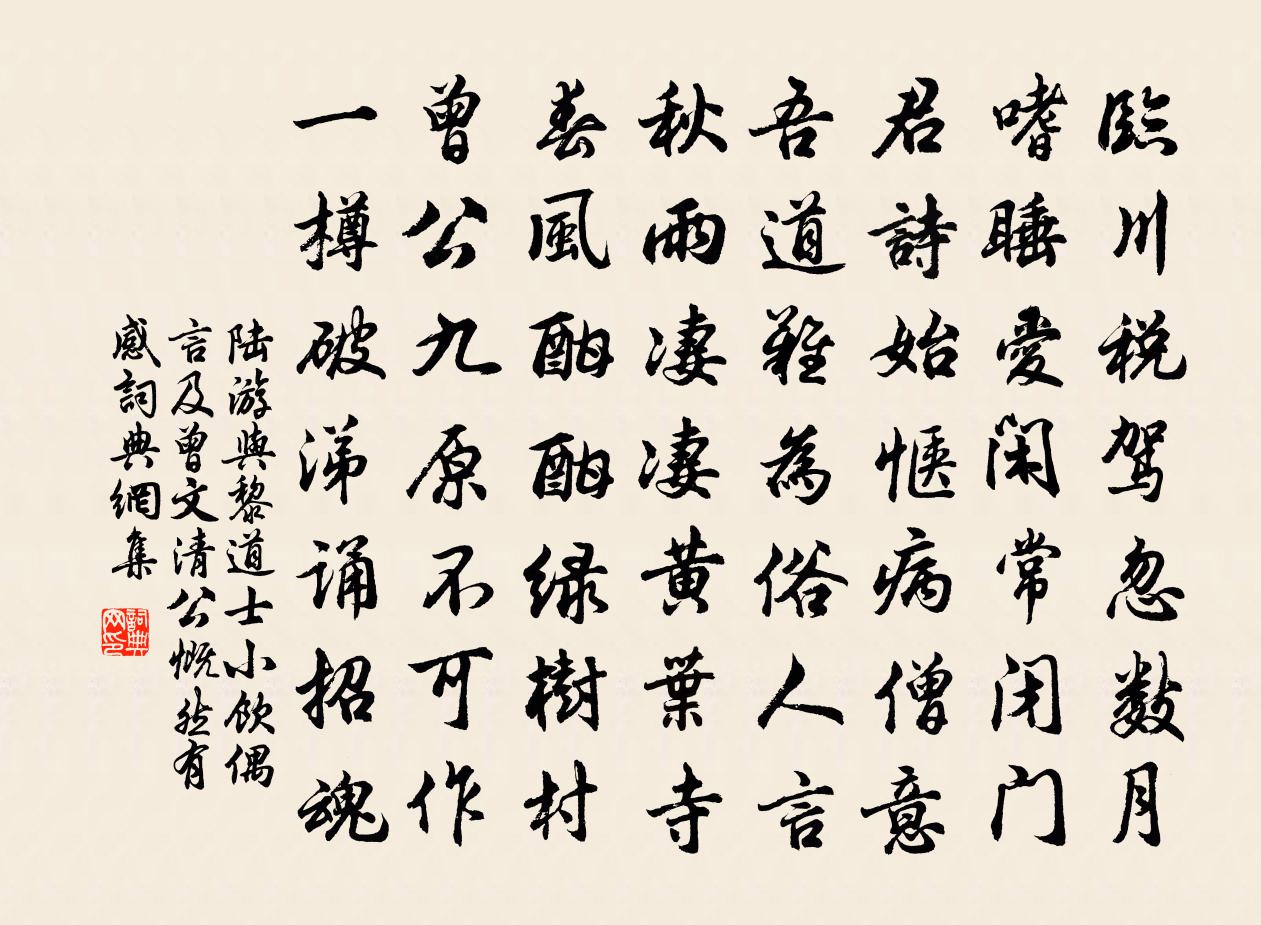 臨川税駕忽數月
嗜睡愛閑常闭門
君詩始惬病僧意
吾道難為俗人言
秋雨淒淒黃葉寺
春風酣酣绿樹村
曾公九原不可作
一樽破涕誦招魂
陆游與黎道士小飲偶
言及曾文清公慨然有
感詞典網集
詞典网印